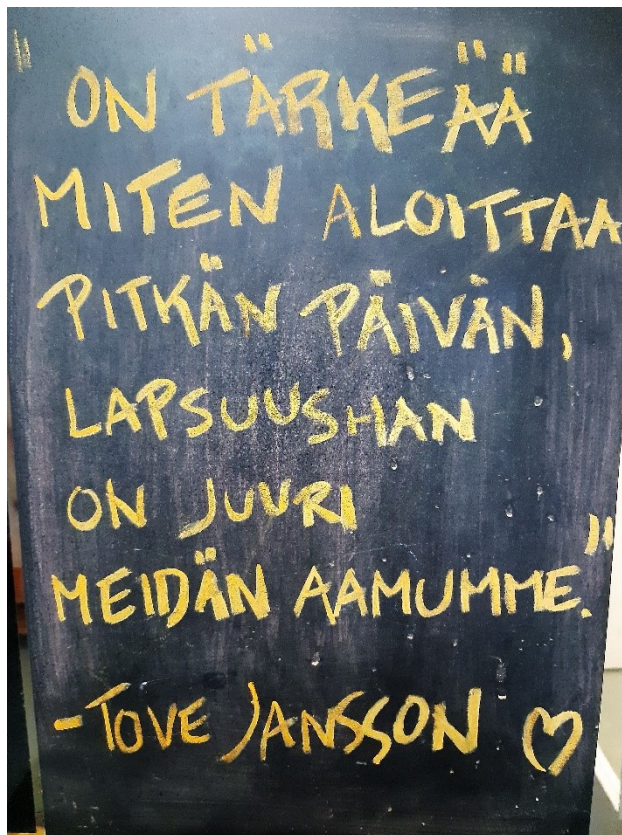 "ON TÄRKEÄÄ
MITEN ALOITTAA
PITKÄN PÄIVÄN,
LAPSUUSHAN
ON JUURI
MEIDÄN AAMUMME."
- TOVE JANSSON ♡